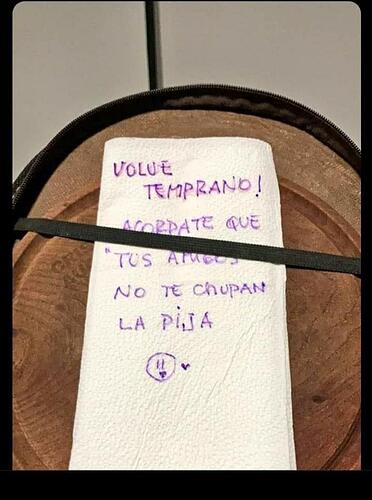 VOLVE
TEMPRANO!
ACORDATE QUE
"TUS AMIGOS
NO TE CHUPAN
LA PIJA